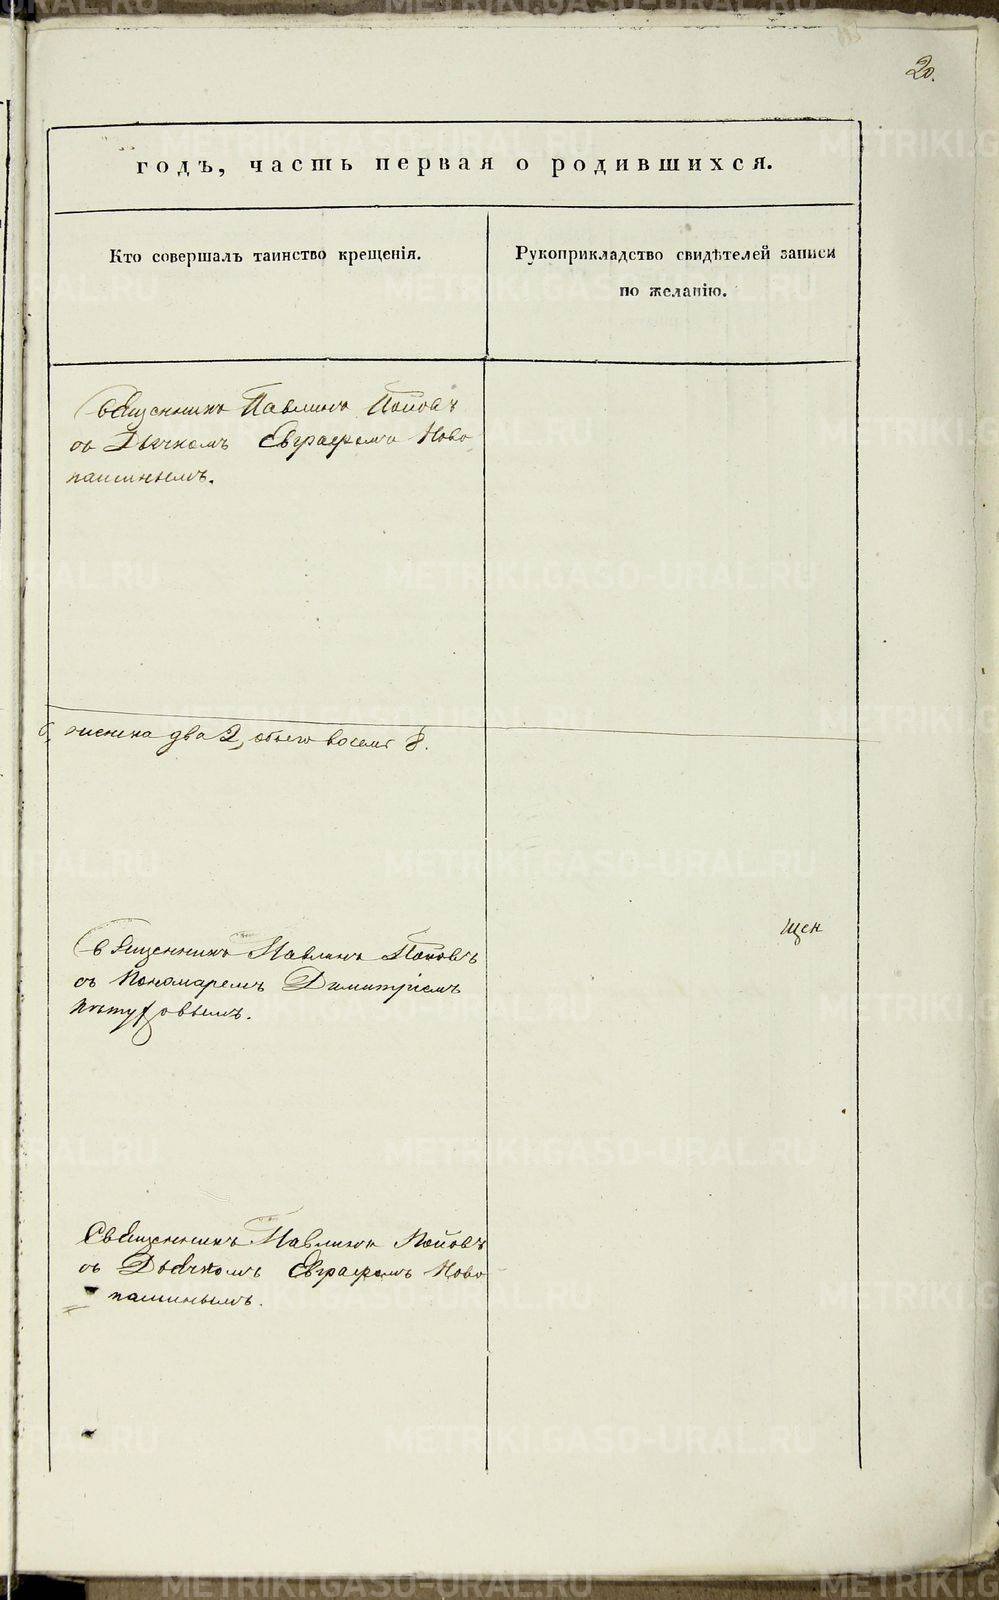 20.
годъ, часть первая о родившихся.
Кто совершалъ таинство крещенія.
Рукоприкладство свидѣтелей записи
по желанію.
Священникъ Павлинъ Поповъ
съ Дьячкомъ Евграфомъ Ново
пашинымъ.
женска два 2, обоего восемь 8.
щен
Священникъ Павлинъ Поповъ
съ Пономаремъ Димитріемъ
Священникъ Павлинъ Поповъ
съ Дьячкомъ Евграфомъ Ново
пашинымъ.
METRIKI.GASO-URAL.RU